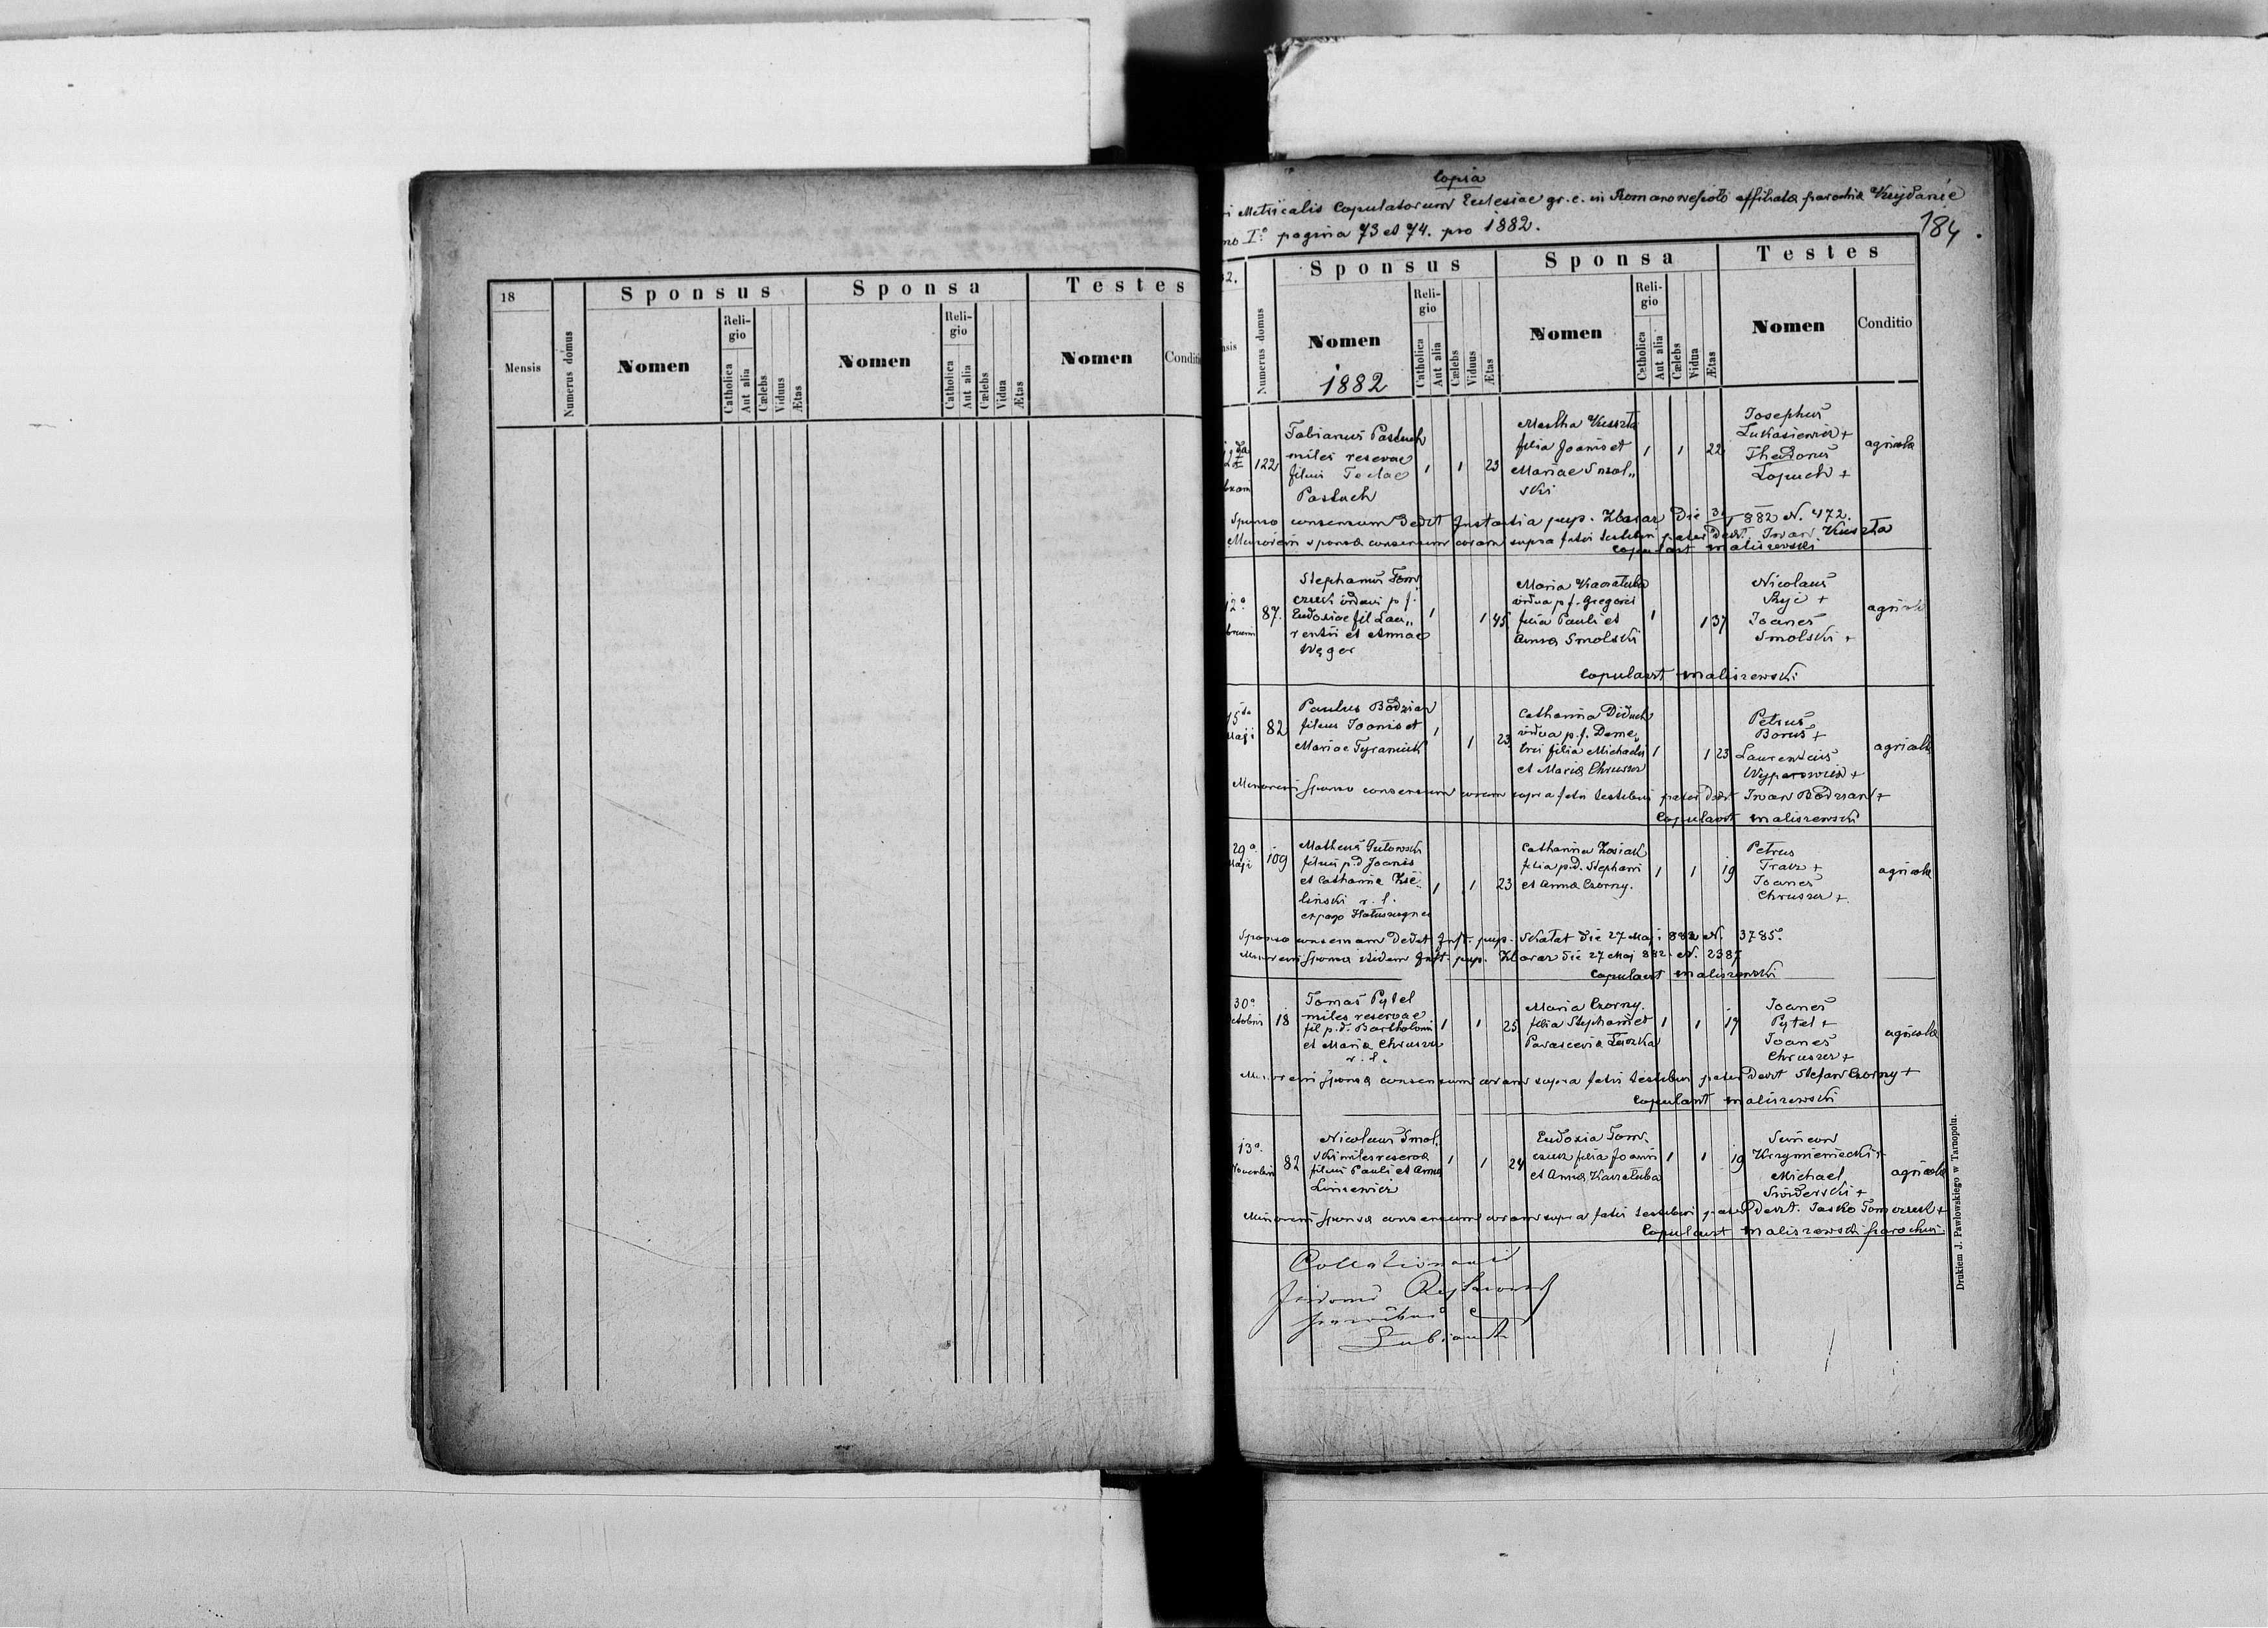 18
Mensis
Numerus domus
Sponsus
Nomen
Religio
Catholica
Aut alia
Cælebs
Viduus
Ætas
Sponsa
Nomen
Religio
Catholica
Aut alia
Cælebs
Vidua
Ætas
Testes
Nomen
Conditi
Copia
Metricalis Copulatorum Eclesiae gr. c. in Romanowesioło affiliata parochia
Iº pagina 73 et 74. pro 1882.
184
Numerus domus
Sponsus
Nomen
1882
Religio
Catholica
Aut alia
Cælebs
Viduus
Ætas
Sponsa
Nomen
Religio
Catholica
Aut alia
Cælebs
Vidua
Ætas
Testes
Nomen
Conditio
122
Fabianus Pastuch
miles reservae
filius Teclae
Pastuch
1 1 23
Martha
filia Joanis et
Mariae Smol„
ski
1 1 22
Josephus
Lukasiewicz +
Theodorus
Łopuch +
agricolæ
Sponso consensum dedit Instantia pup. Zbaraz die 882 N. 472.
Minoreni sponsæ consensum coram supra fatis testibus pater dedit Iwan
Copulavit Maliszewski
12ª
87.
Stephanus Tom„
czuk viduus p. f.
Eudosiae fil Lau„
rentii et Annae
Węger
1 1 45
Maria Karatuba
vidua p. f. Gregorii
filia Pauli et
Anna Smolski
1 1 37
Nicolaus
+
Joanes
Smolski +
agricolæ
Copulavit Maliszewski
15ta
Maji
82
Paulus Bodzian
filius Joanis et
Mariae
1 1 23
Catharina Diduch
vidua p. f. Deme„
trii filia Michaelis
et Mariæ Chruszcz
1 1 23
Petrus
Borus +
Laurentius
Wyparowicz +
agricolæ
Minoreni sponso consensum coram supra fatis testibus pater dedit Iwan Bodzian +
Copulavit Maliszewski
29ª
Maji
109
Matheus Gutowski
filius p. d. Joanis
et Catharinæ Zie„
linski r. l.
ex pago
1 1 23
Catharina Kosiak
filia p. d. Stephani
et Anna Czorny.
1 1 19
Petrus
Tracz +
Joanes
Chruszcz +
agricolæ
Sponso consensum dedit Inst. pup. Skałat die 27 Maji 882 N. 3785.
Minoreni sponsæ itidem Inst. pup. Zbaraz die 27 Maj 882. N. 2387
Copulavit Maliszewski
30ª
Octobris
18
Tomas Pytel
miles reservae
fil p. d. Bartholomi
et Mariæ Chruszcz
r. l.
1 1 25
Maria Czorny.
filia Stephani et
Parascevia
1 1 19
Joanes
Pytel +
Joanes
Chruszcz +
agricolæ
Minoreni sponsæ consensum coram supra fatis testibus pater dedit Stefan Czorny +
Copulavit Maliszewski
13ª
Novembris
82
Nicolaus Smol„
ski miles reservæ
filius Pauli et Anna
Liniewicz
1 1 24
Eudoxia Tom„
czuk filia Joanis
et Anna Karatuba
1 1 19
Simeon
Krzymieniecki +
Michael
Swiderski +
agricolæ
Minoreni sponsæ consensum coram supra fatis testibus pater dedit. Iasko Tomczuk +
Copulavit Maliszewski parochus.
Collationavi
parochus
Drukiem J. Pawłowskiego w Tarnopolu.